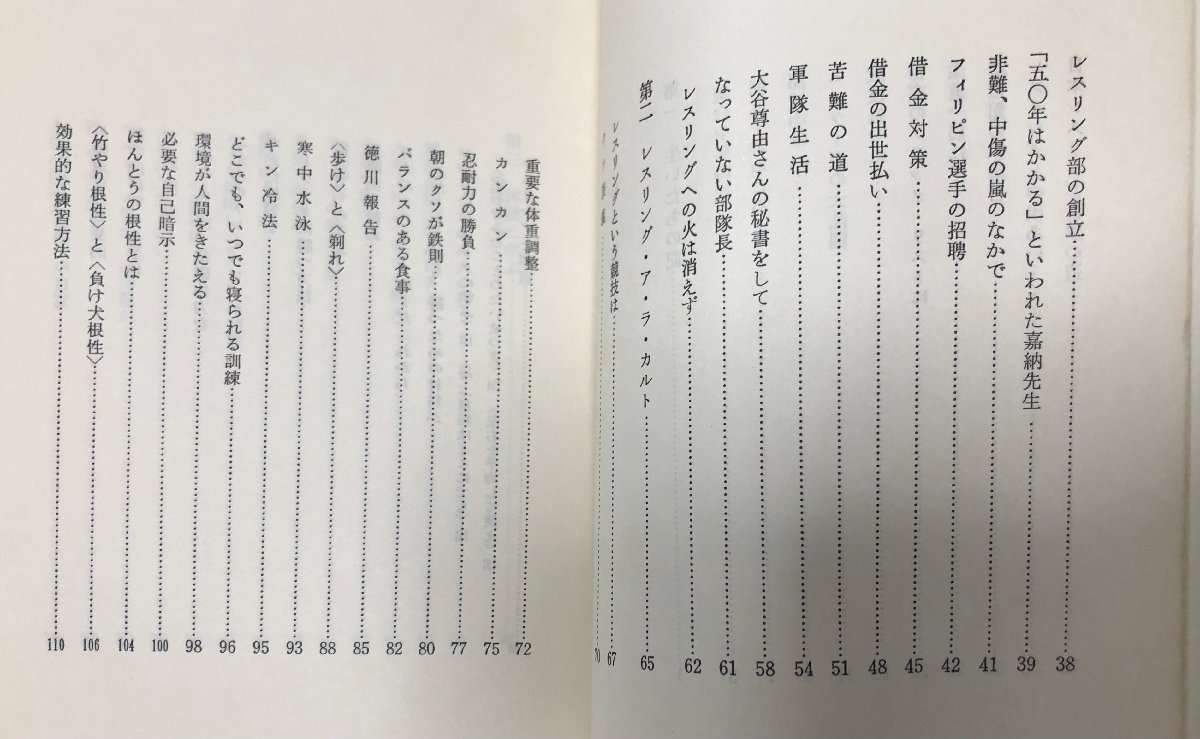 レスリング部の創立……38
「五〇年はかかる」といわれた嘉納先生……39
非難、中傷の嵐のなかで……41
フィリピン選手の招聘……42
借金対策……45
借金の出世払い……48
苦難の道……51
軍隊生活……54
大谷尊由さんの秘書をして……58
なっていない部隊長……61
レスリングへの火は消えず……62
第二 レスリング・ア・ラ・カルト……65
レスリングという競技は……67
70
重要な体重調整……72
カンカン……75
忍耐力の勝負……77
朝のクソが鉄則……80
バランスのある食事……82
徳川報告……85
〈歩け〉と〈剃れ〉……88
寒中水泳……93
キン冷法……95
どこでも、いつでも寝られる訓練……96
環境が人間をきたえる……98
必要な自己暗示……100
ほんとうの根性とは……104
〈竹やり根性〉と〈負け犬根性〉……106
効果的な練習方法……110